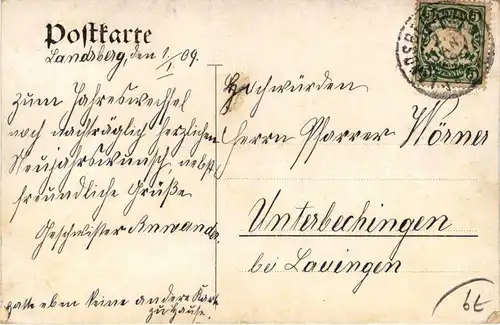 Postkarte
Landsberg, den 1/1 09.
Zum Jahreswechsel
noch nachträglich herzlichen
Neujahrswunsch, nebst
freundliche Grüße
Geschwister Anwander
hatte eben keine andere Karte
zu Hause.
Hochwürden
Herrn Pfarrer Wörner
Unterbechingen
bei Lauingen
5 BAYERN 5
6E